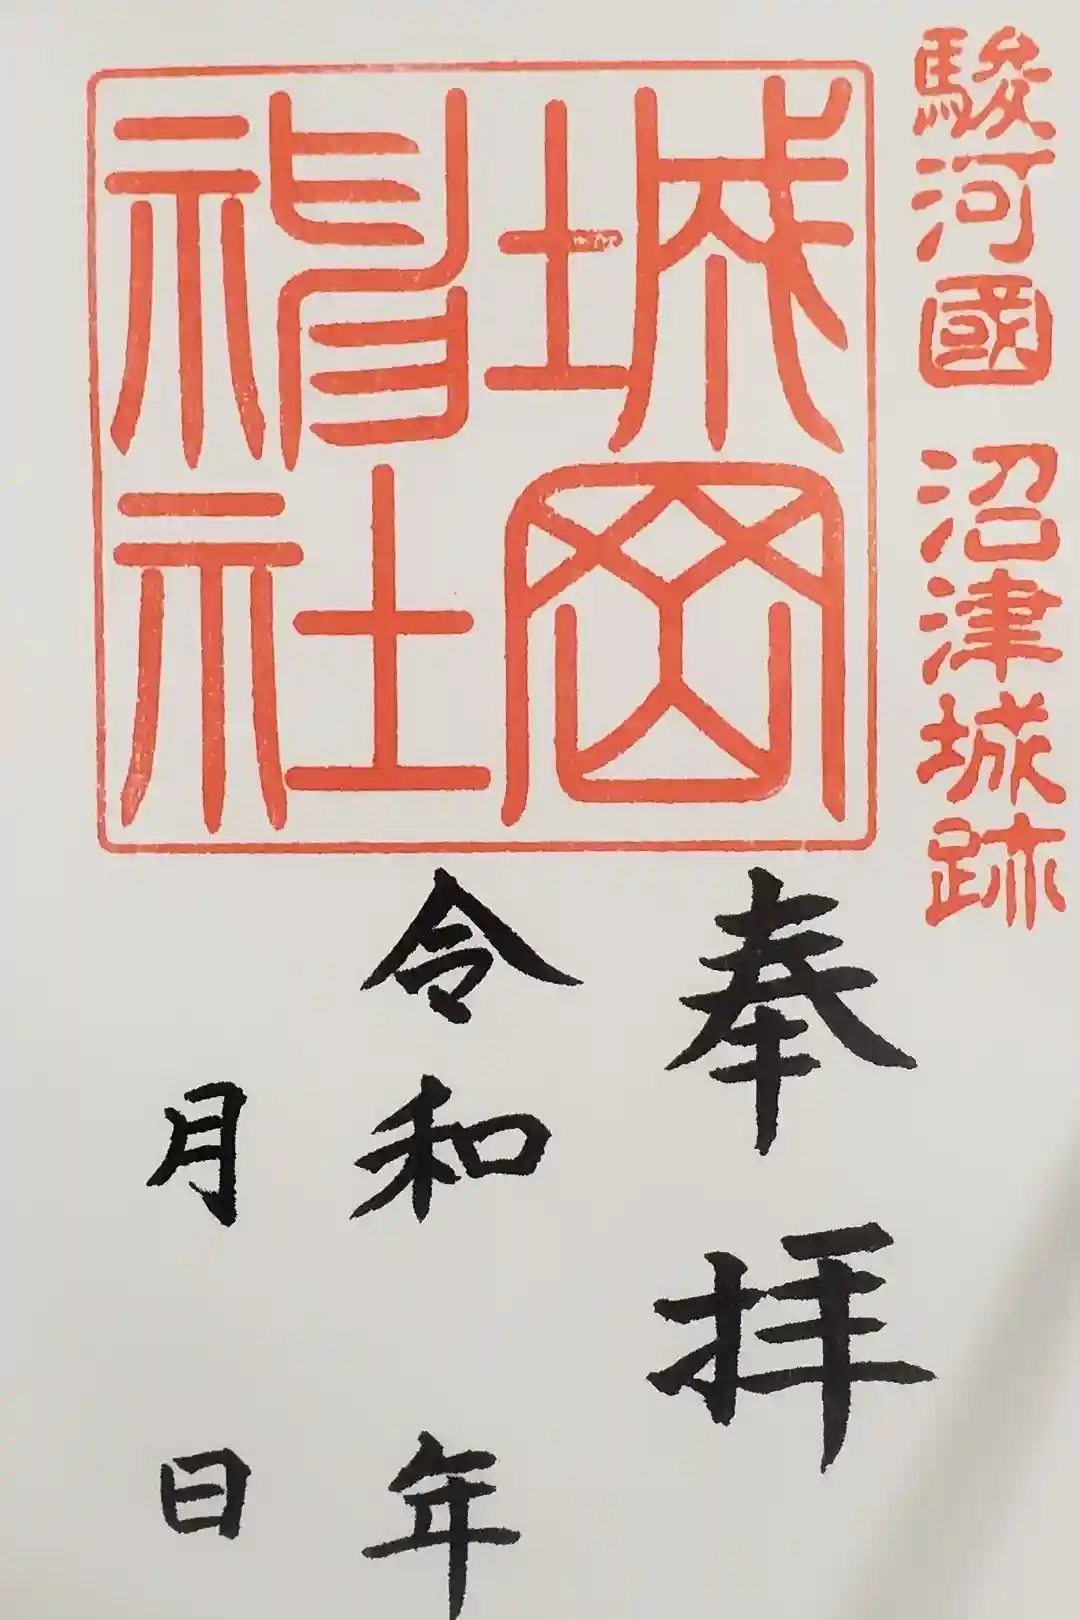 駿河國 沼津城跡
城岡
神社
奉拝
令和 年
月 日